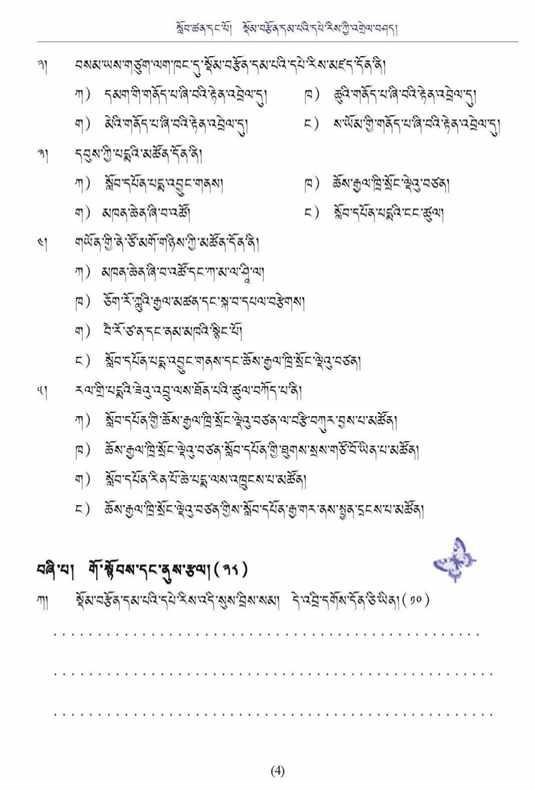 སློབ་ཚན་དང་པོ། སྡོམ་བརྩོན་དམ་པའི་དཔེ་རིས་ཀྱི་འགྲེལ་བཤད།
༢། བསམ་ཡས་གཙུག་ལག་ཁང་དུ་སྡོམ་བརྩོན་དམ་པའི་དཔེ་རིས་མཛད་དོན་ནི།
ཀ) དམག་གི་གནོད་པ་ཞི་བའི་རྟེན་འབྲེལ་དུ། ཁ) ཆུའི་གནོད་པ་ཞི་བའི་རྟེན་འབྲེལ་དུ།
ག) མེའི་གནོད་པ་ཞི་བའི་རྟེན་འབྲེལ་དུ། ང) ས་ཡོམ་གྱི་གནོད་པ་ཞི་བའི་རྟེན་འབྲེལ་དུ།
༣། དབུས་ཀྱི་པདྨའི་མཚོན་དོན་ནི།
ཀ) སློབ་དཔོན་པདྨ་འབྱུང་གནས། ཁ) ཆོས་རྒྱལ་ཁྲི་སྲོང་ལྡེའུ་བཙན།
ག) མཁན་ཆེན་ཞི་བ་འཚོ། ང) སློབ་དཔོན་པདྨའི་ངང་ཚུལ།
༤། གཡོན་གྱི་ནེ་ཙོ་མགོ་གཉིས་ཀྱི་མཚོན་དོན་ནི།
ཀ) མཁན་ཆེན་ཞི་བ་འཚོ་དང་ཀ་མ་ལ་ཤཱི་ལ།
ཁ) ཅོག་རོ་ཀླུའི་རྒྱལ་མཚན་དང་སྐ་བ་དཔལ་བརྩེགས།
ག) བཻ་རོ་ཙ་ན་དང་ནམ་མཁའི་སྙིང་པོ།
ང) སློབ་དཔོན་པདྨ་འབྱུང་གནས་དང་ཆོས་རྒྱལ་ཁྲི་སྲོང་ལྡེའུ་བཙན།
༥། རལ་གྲི་པདྨའི་ཟེའུ་འབྲུ་ལས་ཐོན་པའི་ཚུལ་བཀོད་པ་ནི།
ཀ) སློབ་དཔོན་གྱི་ཆོས་རྒྱལ་ཁྲི་སྲོང་ལྡེའུ་བཙན་ལ་བརྩི་བཀུར་བྱས་པ་མཚོན།
ཁ) ཆོས་རྒྱལ་ཁྲི་སྲོང་ལྡེའུ་བཙན་སློབ་དཔོན་གྱི་ཐུགས་སྲས་གཙོ་བོ་ཡིན་པ་མཚོན།
ག) སློབ་དཔོན་རིན་པོ་ཆེ་པདྨ་ལས་འཁྲུངས་པ་མཚོན།
ང) ཆོས་རྒྱལ་ཁྲི་སྲོང་ལྡེའུ་བཙན་གྱིས་སློབ་དཔོན་རྒྱ་གར་ནས་སྤྱན་དྲངས་པ་མཚོན།
བཞི་པ། གོ་སྟོབས་དང་ནུས་རྩལ། (༣༨)
ཀ། སྡོམ་བརྩོན་དམ་པའི་དཔེ་རིས་འདི་སུས་བྲིས་སམ། དེ་འབྲི་དགོས་དོན་ཅི་ཡིན། (༡༠)
(4)